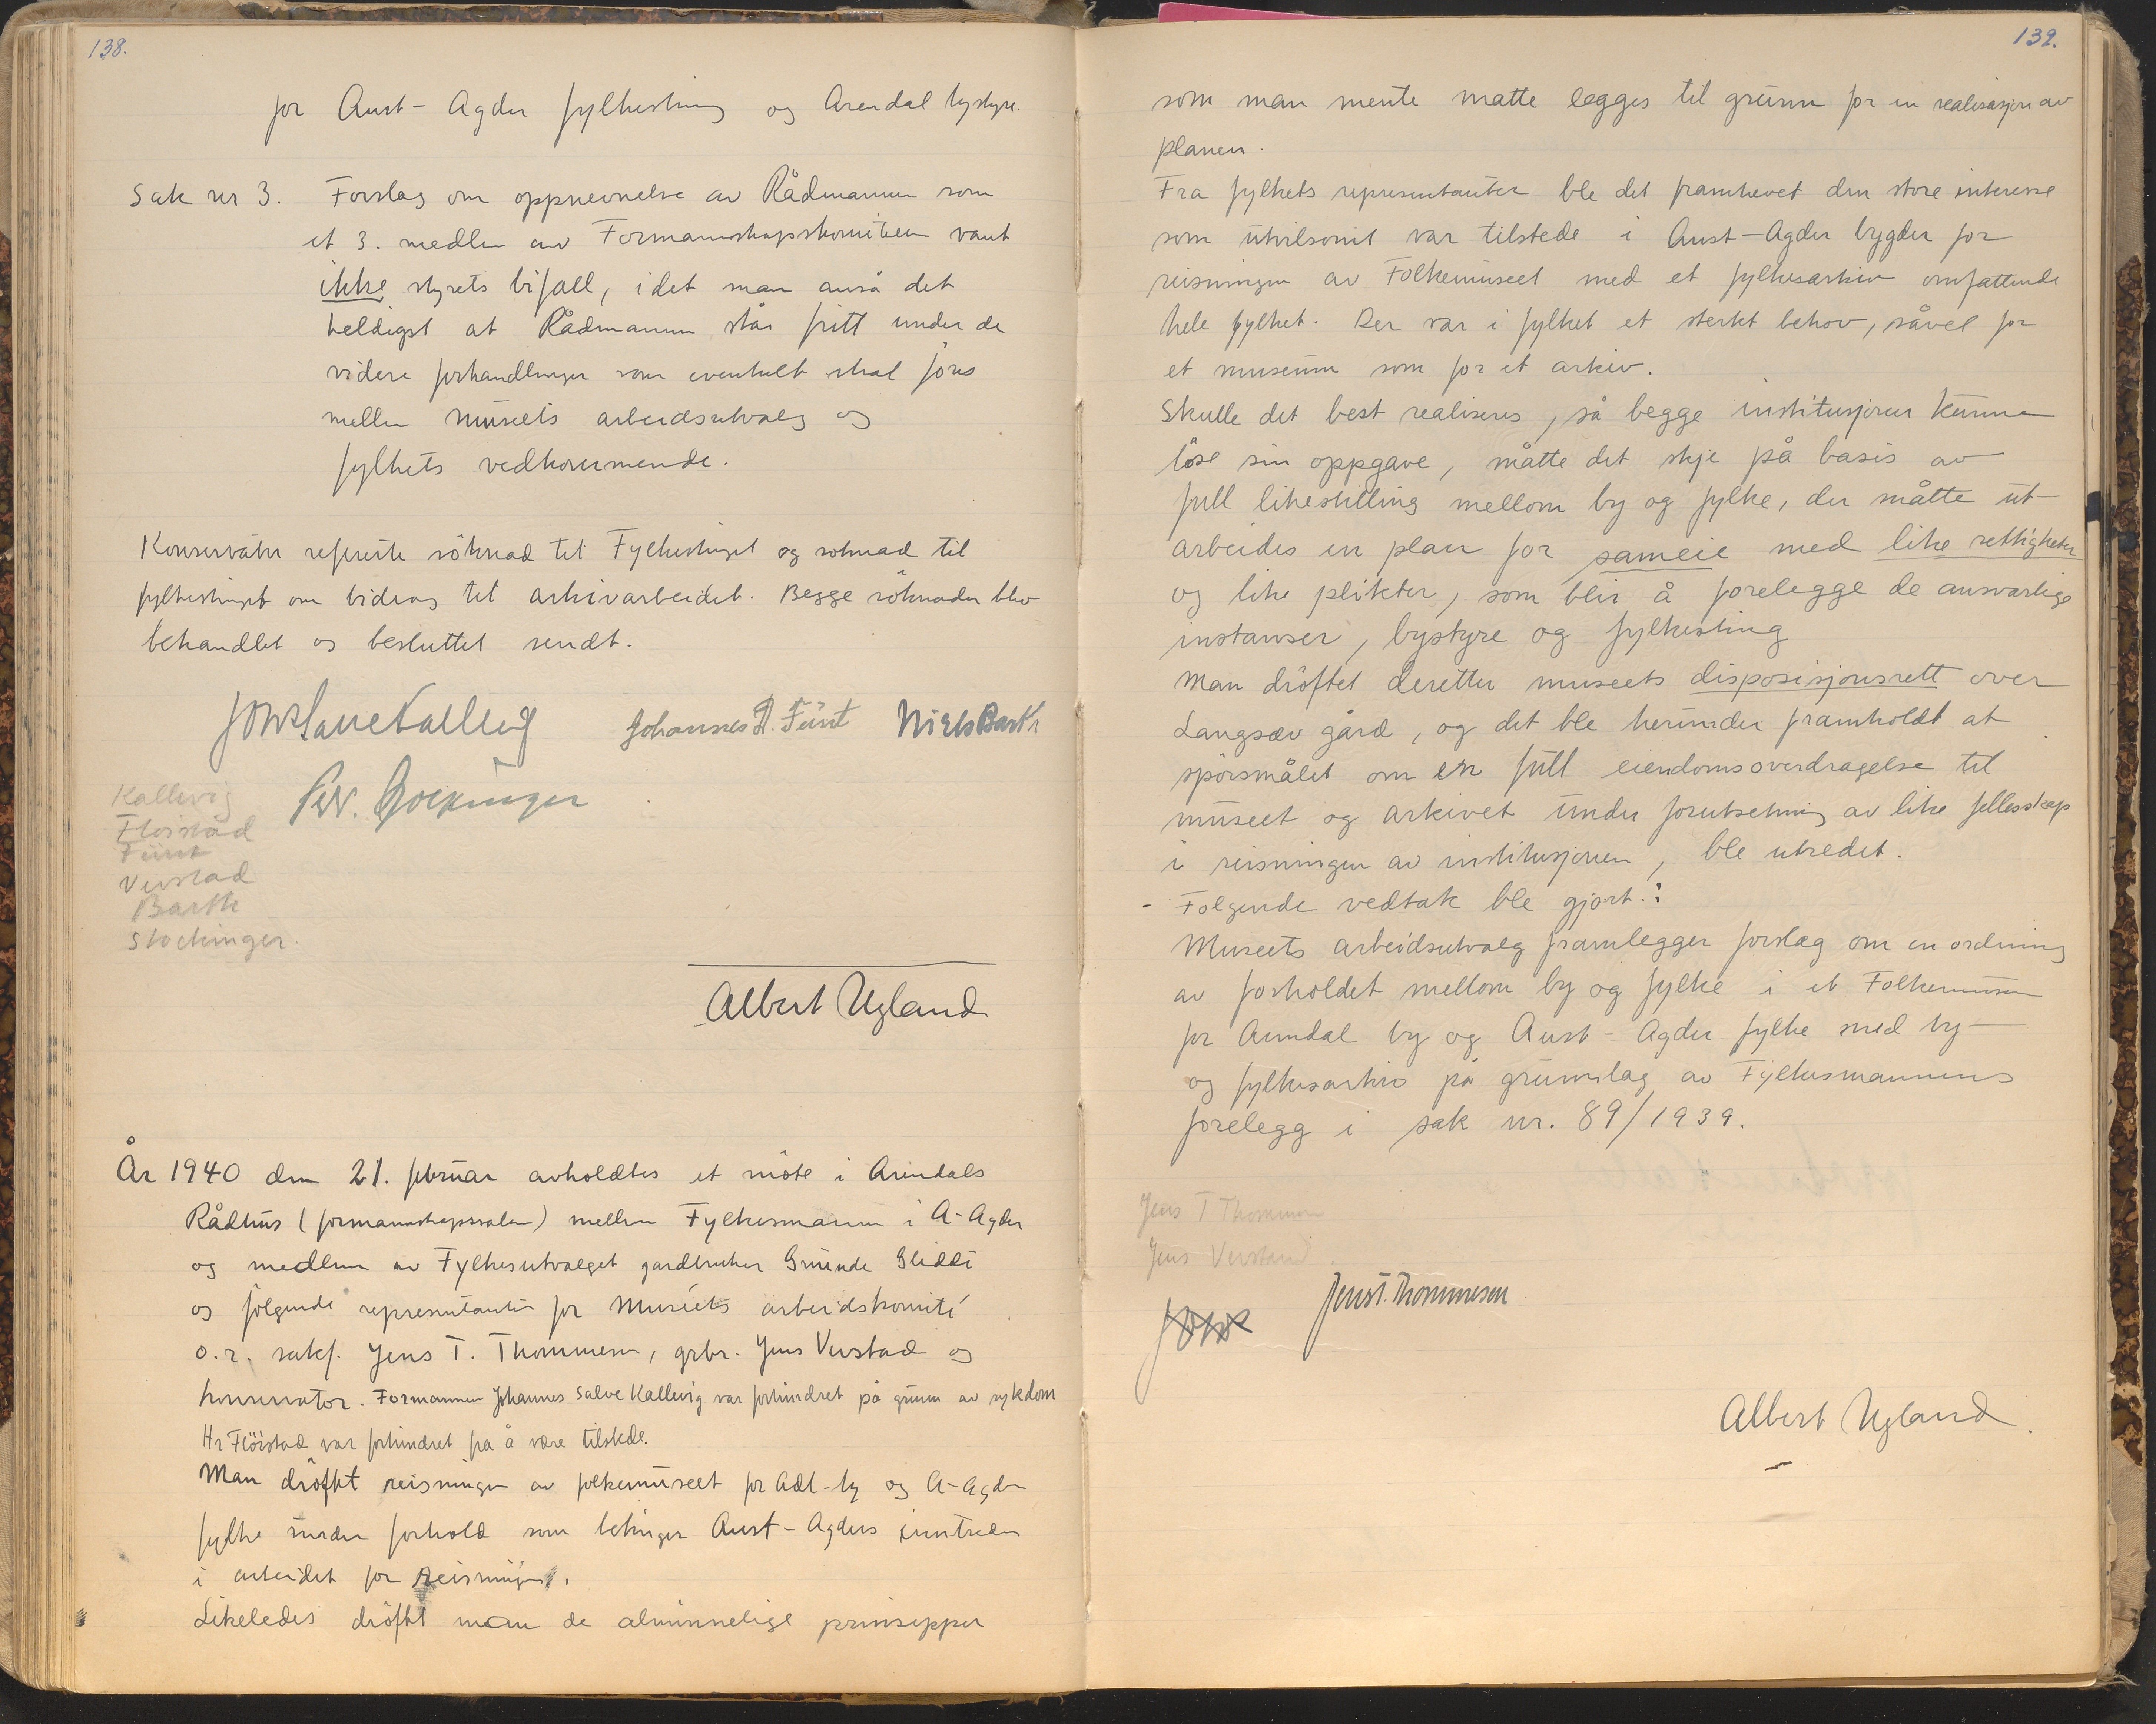 138.
for Aust-Agder fylkesting og Arendal bystyre.
Sak nr 3. Forslag om oppnevnelse av Rådmannen som
et 3. medlem av Formannskapskomiteen vant
ikke styrets bifall, idet man anså det
heldigst at Rådmannen står fritt under de
videre forhandlinger som eventuelt skal föres
mellem museets arbeidsutvalg og
fylkets vedkommende.
Konservator refererte söknad til Fylkestinget og söknad til
fylkestinget om bidrag til arkivarbeidet. Begge söknader blev
behandlet og besluttet sendt.
Johs Salve Kallevig Johannes A. Fürst Niels Barth
Kallevig
Flöistad
Fürst
Verstad
Barth
Stockinger.
Per. Stockinger
Albert Ugland
År 1940 den 21. februar avholdtes et möte i Arendals
Rådhus (formannskapssalen) mellem Fylkesmannen i A-Agder
og medlem av Fylkesutvalget gardbruker Gunde Gliddi
og fölgende representanter for Museets arbeidskomité
o.r. sakf. Jens T. Thommesen, grbr. Jens Verstad og
konservator. Formannen Johannes Salve Kallevig var forhindret på grunn av sykdom
Hr Flöistad var forhindret fra å være tilstede.
Man dröftet reisningen av folkemuseet for Adl-by og A-Agder
fylke under forhold som betinger Aust-Agders inntreden
i arbeidet for reisningen.
Likeledes dröftet man de alminnelige prinsipper
139.
som man mente matte legges til grunn for en realisasjon av
planen.
Fra fylkets representanter ble det framhevet den store interesse
som utvilsomt var tilstede i Aust-Agder bygder for
reisningen av Folkemuseet med et fylkesarkiv omfattende
hele fylket. Der var i fylket et sterkt behov, såvel for
et museum som for et arkiv.
Skulle det best realiseres, så begge institusjoner kunne
löse sin oppgave, måtte det skje på basis av
full likestilling mellom by og fylke, der måtte ut-
arbeides en plan for sameie med like rettigheter
og like plikter, som blir å forelegge de ansvarlige
instanser, bystyre og fylkesting
Man dröftet deretter museets disposisjonsrett over
Langsæv gård, og det ble herunder framholdt at
spörsmålet om en full eiendomsoverdragelse til
museet og arkivet under forutsetning av like fellesskap
i reisningen av institusjonen, ble utredet.
- Folgende vedtak ble gjort:
Museets arbeidsutvalg framlegger forslag om en ordning
av forholdet mellom by og fylke i et Folkemuseum
for Arendal by og Aust-Agder fylke med by-
og fylkesarkiv på grunnlag av Fylkesmannens
forelegg i sak nr. 89/1939.
Jens T Thommesen
Jens Verstad
Jens T. Thommesen
Albert Ugland